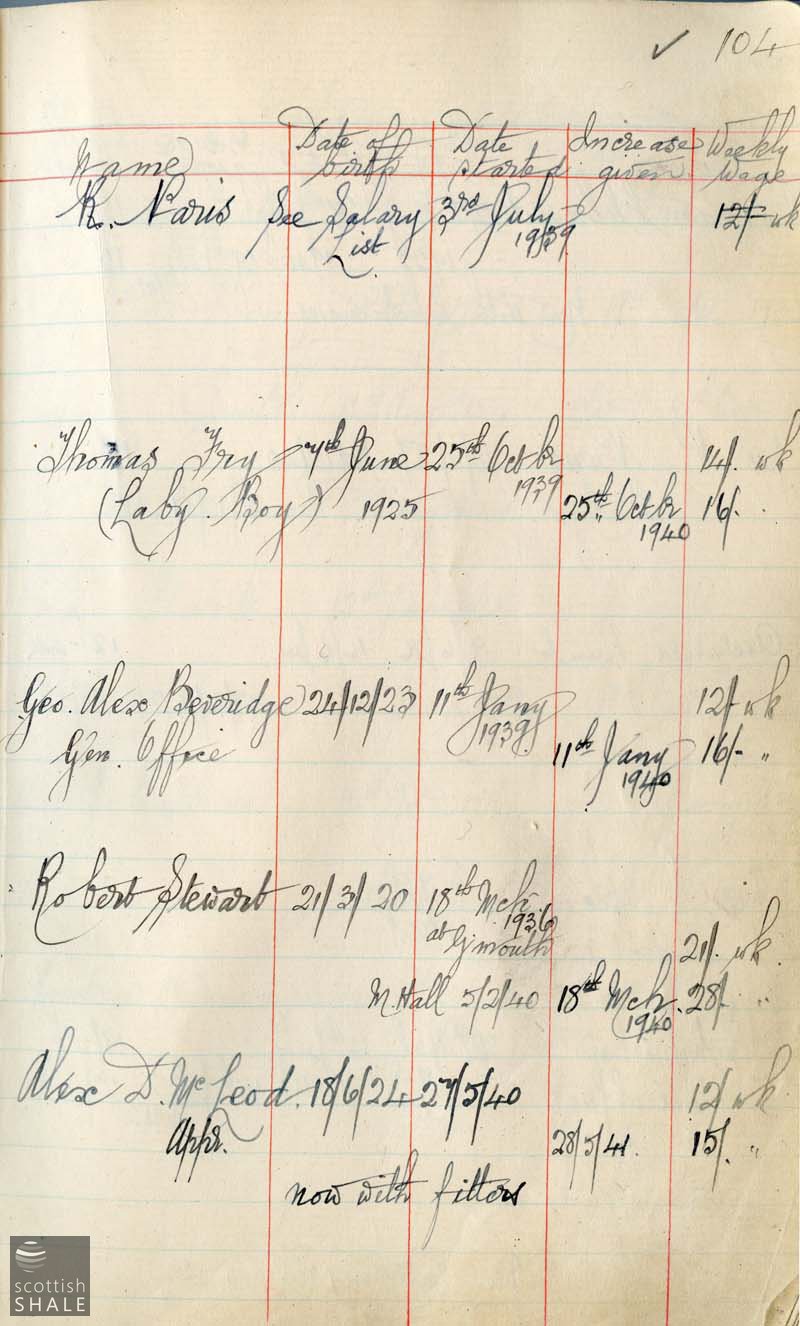 ✓ 104
Name Date of birth Date started Increase given Weekly Wage
R. Paris See Salary List 3rd July 1939 12/- wk
Thomas Fry 7th June 25th Octbr 1939 14/- wk
(Laby. Boy) 1925 25th Octbr 1940 16/-
Geo. Alex Beveridge 24/12/23 11th Jany 1939 12/- wk
Gen. Office 11th Jany 1940 16/- "
Robert Stewart 21/3/20 18th Mch 1936
at G'mouth 21/- wk
M. Hall 5/2/40 18th Mch. 1940 28/- "
Alex D. McLeod. 18/6/24 27/5/40 12/ wk
Appr. 28/5/41. 15/- "
now with fitters
scottish
SHALE